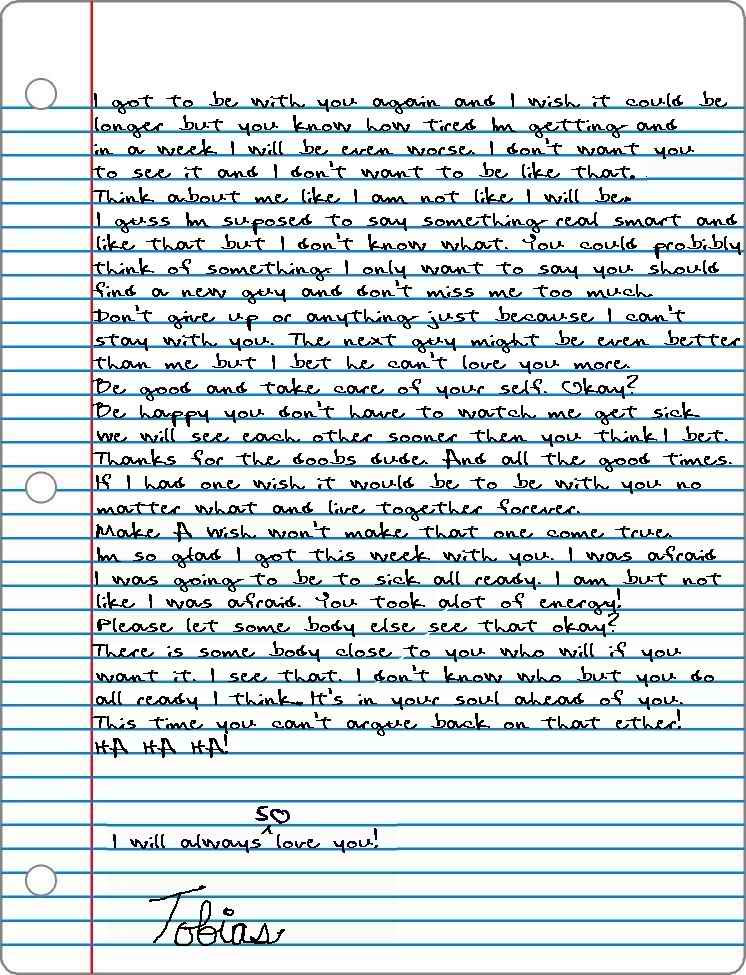 I got to be with you again and I wish it could be
longer but you know how tired Im getting and
in a week I will be even worse. I don't want you
to see it and I don't want to be like that.
Think about me like I am not like I will be.
I guss Im suposed to say something real smart and
like that but I don't know what. You could probibly
think of something. I only want to say you should
find a new guy and don't miss me too much.
Don't give up or anything just because I can't
stay with you. The next guy might be even better
than me but I bet he can't love you more.
Be good and take care of your self. Okay?
Be happy you don't have to watch me get sick
we will see each other sooner then you think I bet.
Thanks for the doobs dude. And all the good times.
If I had one wish it would be to be with you no
matter what and live together forever.
Make A wish won't make that one come true.
Im so glad I got this week with you. I was afraid
I was going to be to sick all ready. I am but not
like I was afraid. You took alot of energy!
Please let some body else see that okay?
There is some body close to you who will if you
want it. I see that. I don't know who but you do
all ready I think. It's in your soul ahead of you.
This time you can't argue back on that ether!
HA HA HA!
50♡
I will always ^ love you!
Tobias